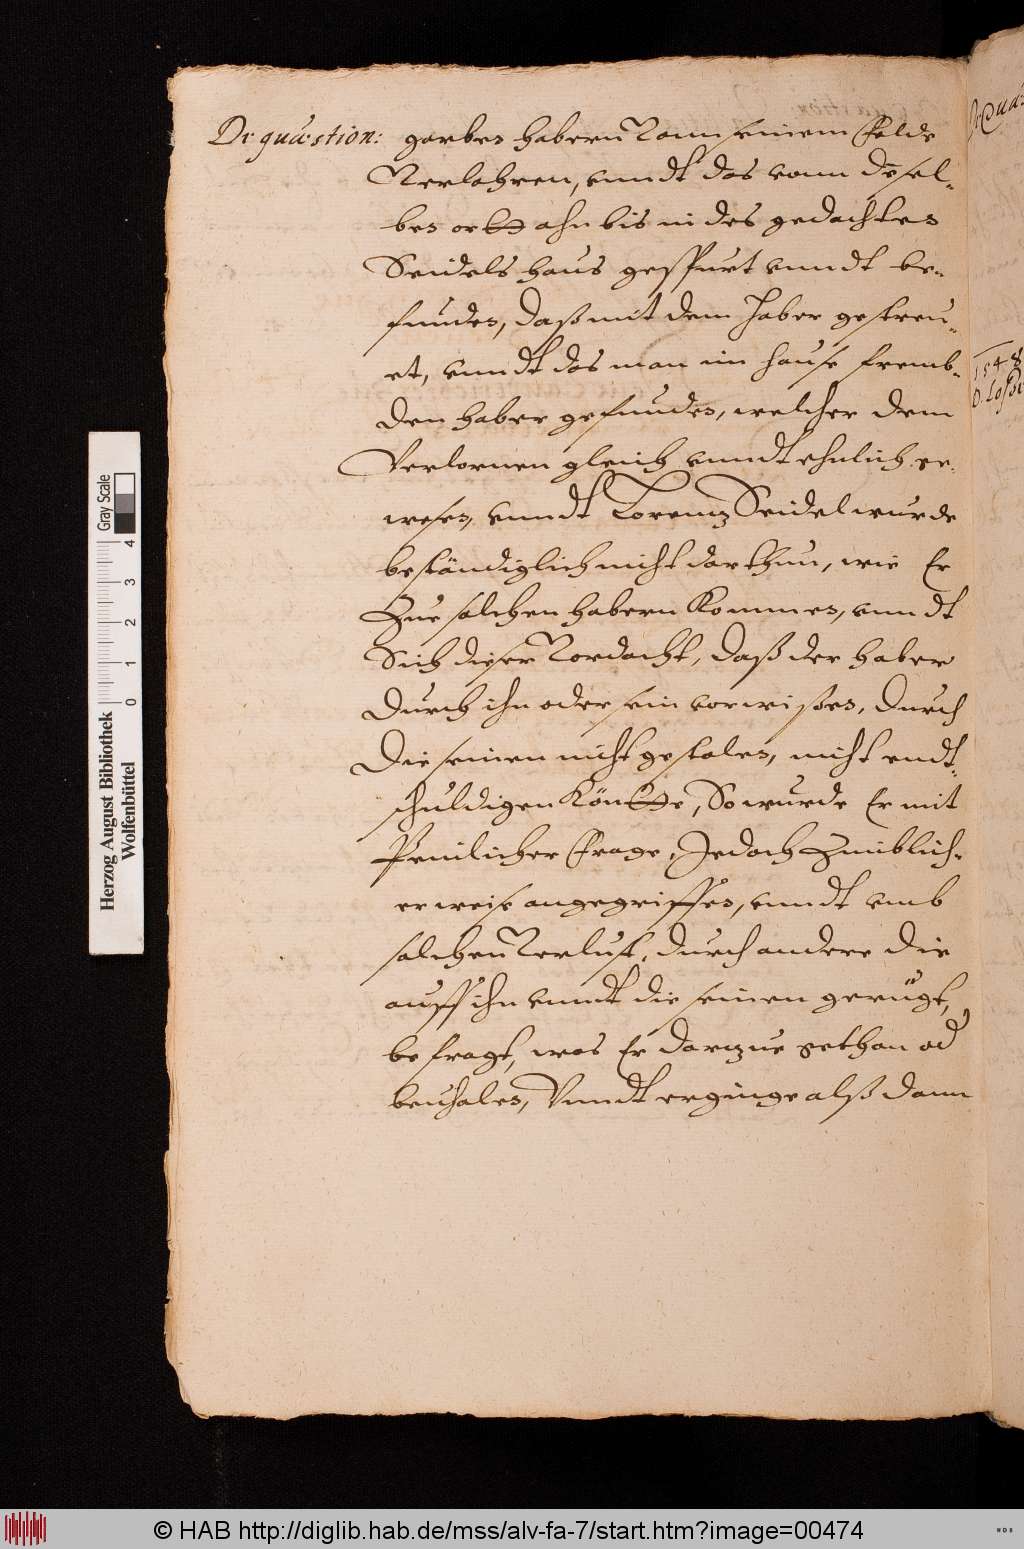 De quæstion: garben habern Vonn seinem Felde
Verlohren, vnndt das vonn desel-
ben ortt ahn bis in des gedachten
Seidels haus gespurt vnndt be-
funden, daß mit dem haber gestreu-
et, vnndt das man im hause fremb-
den haber gefunden, welcher dem
Verlornen gleich vnndt ehnlich ge-
wesen, vnndt Lorenz Seidel wurde
bestendiglich nicht darthun, wie Er
Zue solchen habern Kommen, vnndt
Sich dieser Vordacht, daß der haber
durch ihn oder sein vorwissen, durch
die seinen nicht gestolen, nicht endt-
schuldigen Köntte, So wurde Er mit
Peinlicher Frage, Jedoch Zimblich-
erweise angegriffen, vnndt vmb
solchen Verlust, durch andere die
auff ihn vnndt die seinen gerügt,
befragt, was Er darzue gethan od
beuholen, Vnndt erginge alß dann
1548
D. Loss
Gray Scale
0 1 2 3 4
Herzog August Bibliothek
Wolfenbüttel
© HAB http://diglib.hab.de/mss/alv-fa-7/start.htm?image=00474